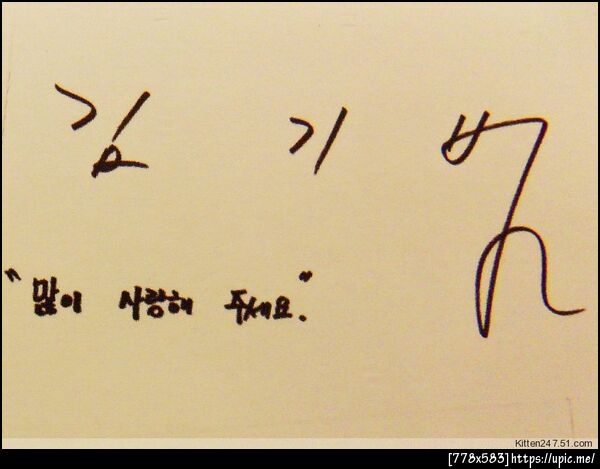 김 기범
"많이 사랑해 주세요."
Kitten247.51.com
[778x583]https://upic.me/